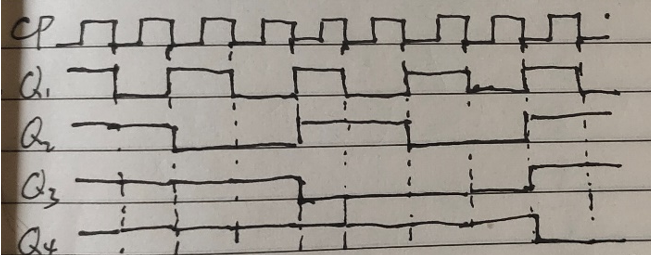 CP
Q₁
Q₂
Q₃
Q₄